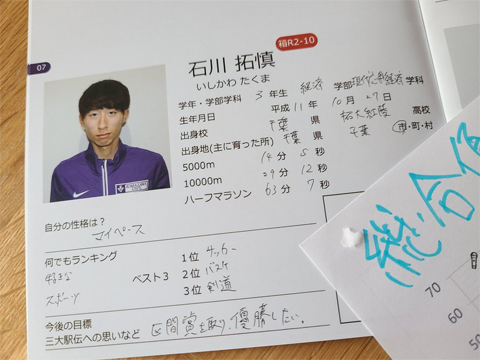 07
稲R2-10
石川 拓慎
いしかわ たくま
学年・学部学科 3 年生 経済 学部 現代応用経済 学科
生年月日 平成 11 年 10 月 27 日
出身校 千葉 県 拓大紅陵 高校
出身地(主に育った所) 千葉 県 千葉 市・町・村
5000m 14 分 5 秒
10000m 29 分 12 秒
ハーフマラソン 63 分 7 秒
自分の性格は?
マイペース
何でもランキング
好きな
スポーツ
ベスト3
1位 サッカー
2位 バスケ
3位 剣道
今後の目標
三大駅伝への思いなど 区間賞を取り、優勝したい。
総合
70
60
50